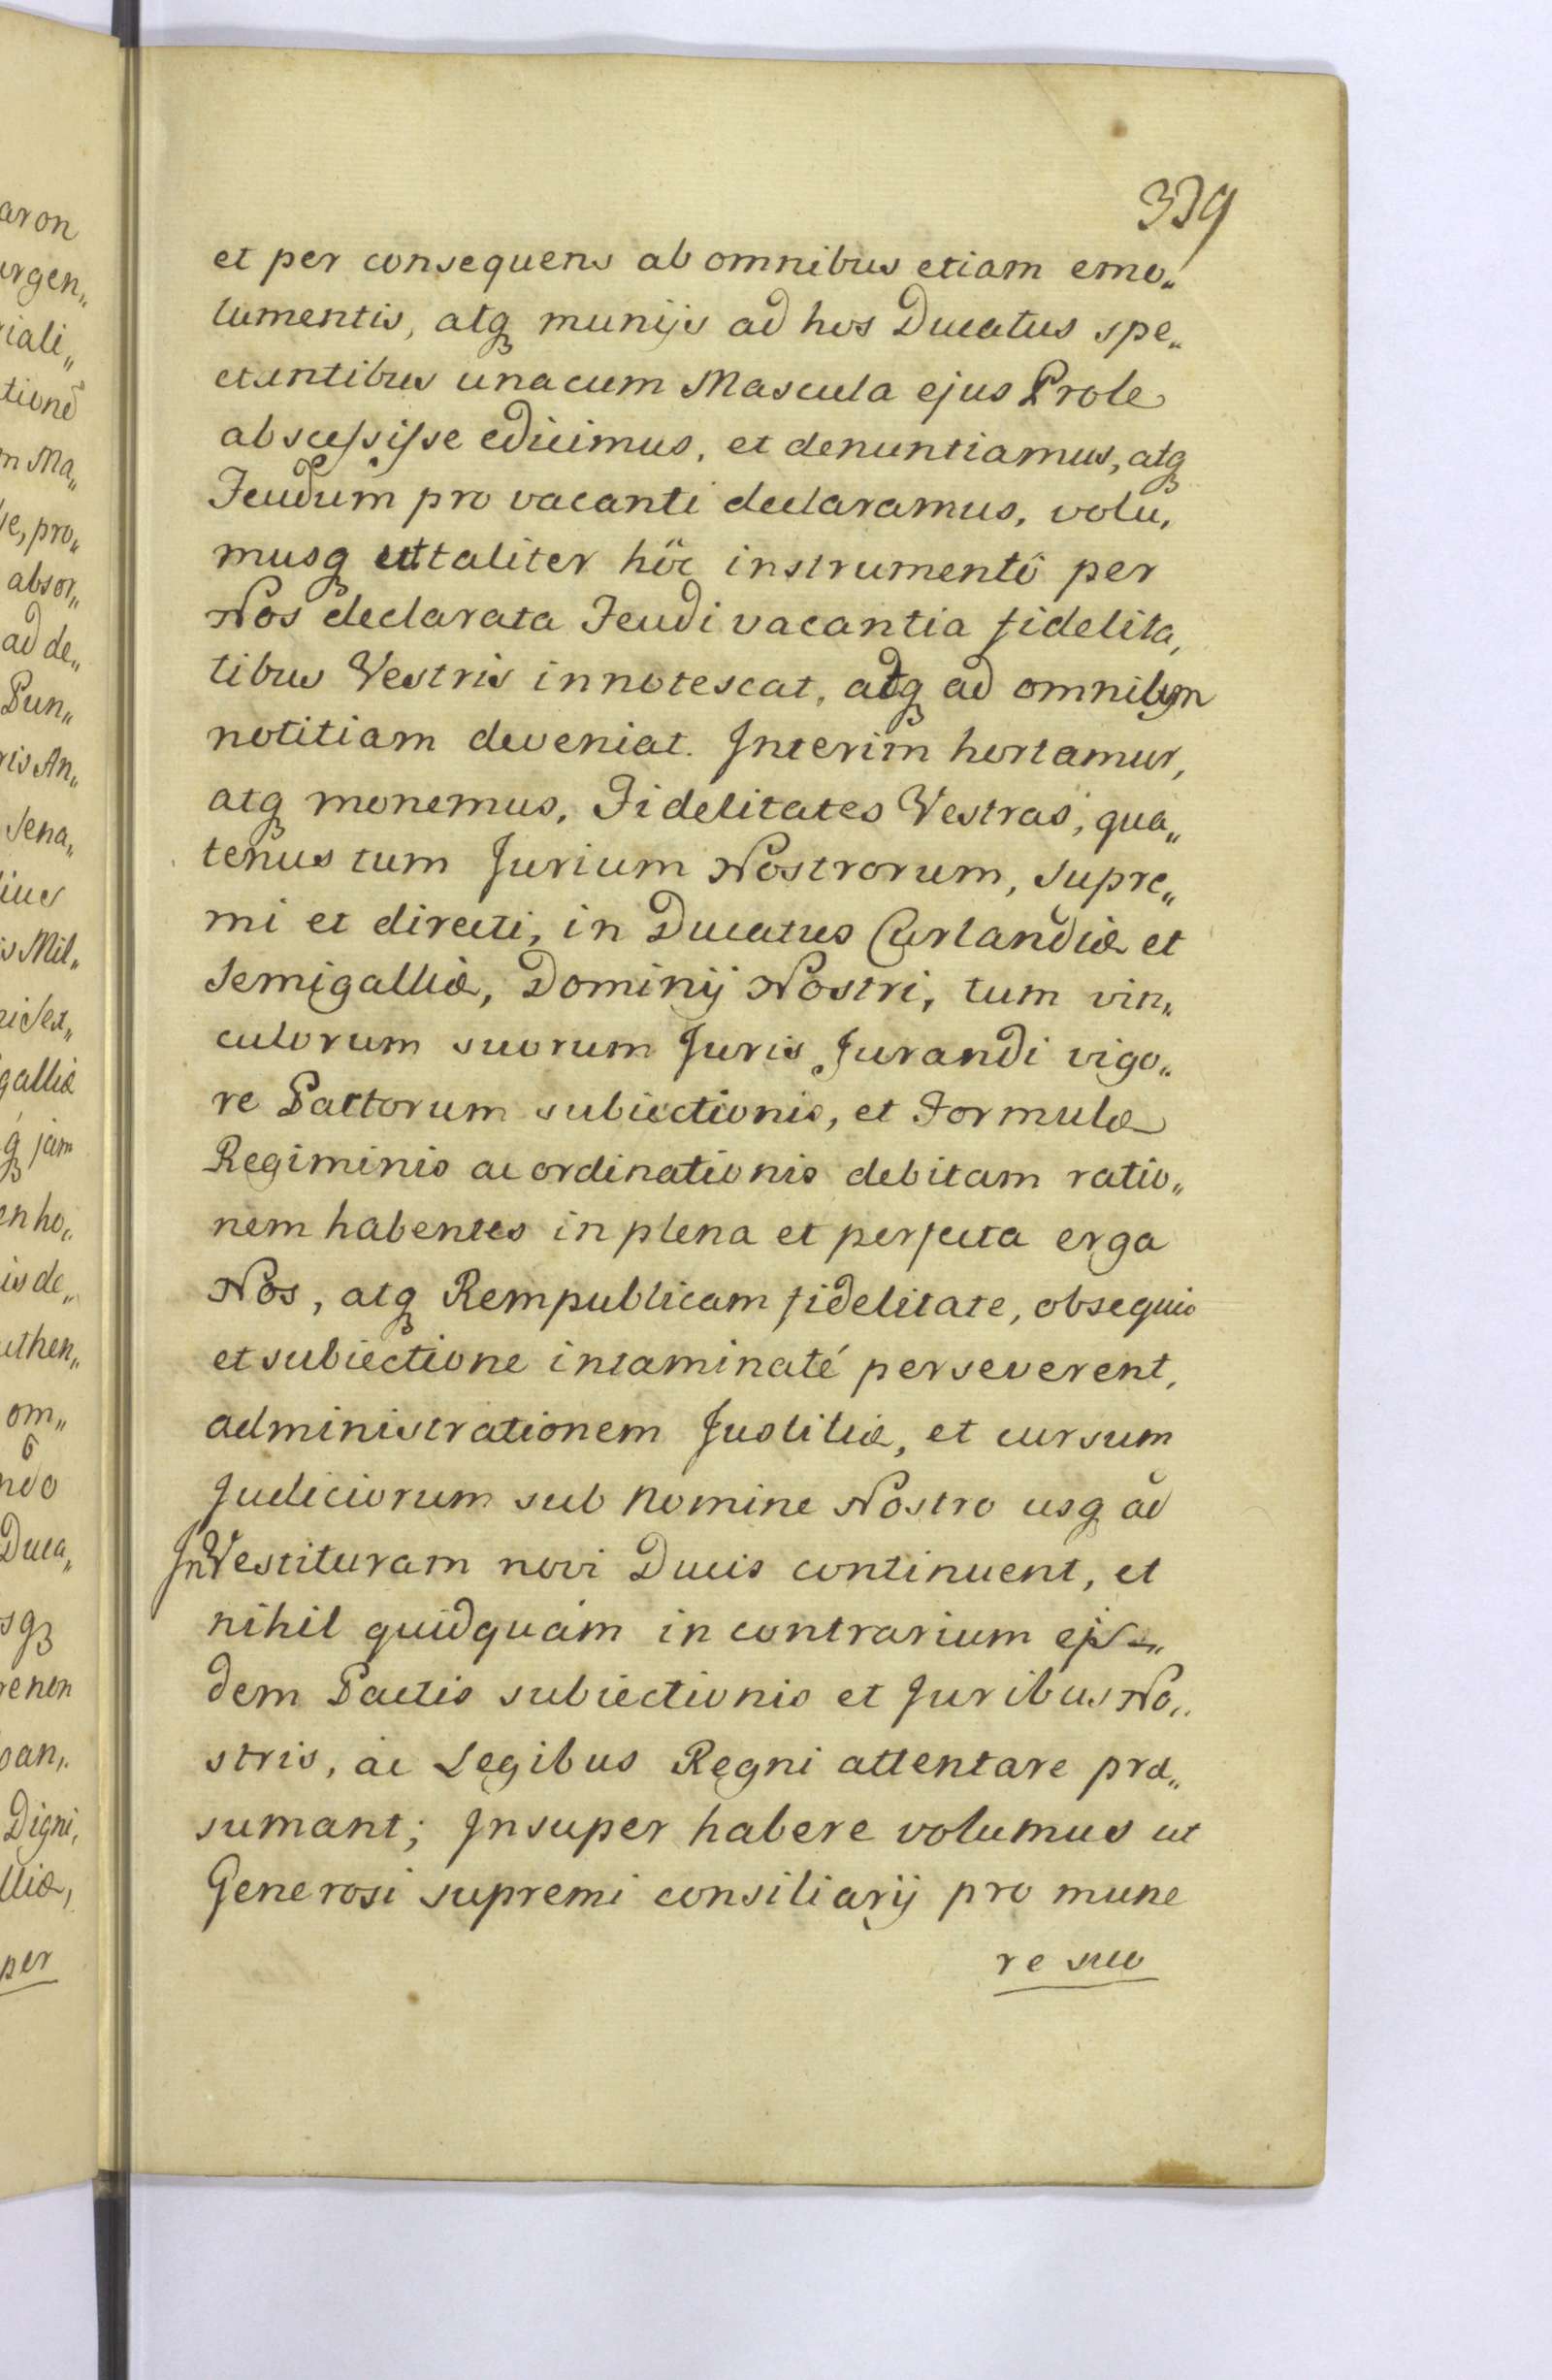 aron
urgen„
riali„
tionē
m Ma„
pro„
absor„
ad de„
Pun„
ris An„
Sena„
s Mil„
galliæ
jam
en ho„
is de„
uthen„
om„
ndo
Duca„
sq3
re non
oan„
Digni„
lliæ,
per
339
et per consequens ab omnibus etiam emo„
lumentis, atq3 munijs ad hos Ducatus spe„
ctantibus unacum Mascula ejus Prole
abscessisse edicimus, et denuntiamus, atq3
Feudum pro vacanti declaramus, volu„
musq3 ut taliter hôc instrumentô per
Nos declarata Feudi vacantia fidelita„
tibus Vestris innotescat, atq3 ad omnium
notitiam deveniat. Interim hortamur,
atq3 monemus, Fidelitates Vestras, qua„
tenus tum Jurium Nostrorum, supre„
mi et directi, in Ducatus Curlandiæ et
Semigalliæ, Dominij Nostri, tum vin„
culorum suorum Juris Jurandi vigo„
re Pactorum subiectionis, et Formulæ
Regiminis ac ordinationis debitam ratio„
nem habentes in plena et perfecta erga
Nos, atq3 Rempublicam fidelitate, obsequio
et subiectione intaminaté perseverent,
administrationem Justitiæ, et cursum
Judiciorum sub Nomine Nostro usq3 ad
InVestituram novi Ducis continuent, et
nihil quidquam in contrarium ejs„
dem Pactis subiectionis et Juribus No„
stris, ac Legibus Regni attentare præ„
sumant; Insuper habere volumus ut
Generosi supremi consiliarij pro mune
re suo